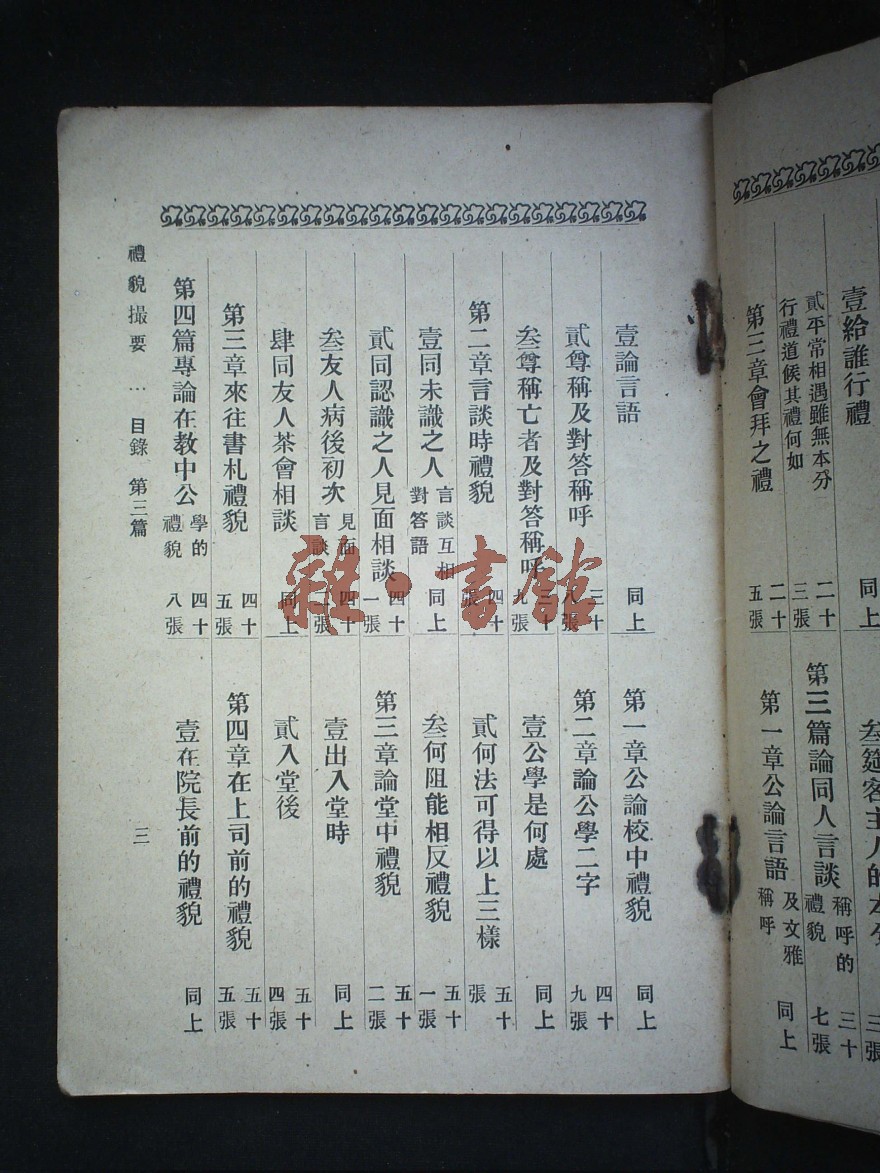 壹給誰行禮 同上
貳平常相遇雖無本分
行禮道候其禮何如 二十三張
第三章會拜之禮 二十五張
第三篇論同人言談稱呼的禮貌 三十七張
第一章公論言語及文雅稱呼 同上
壹論言語 同上
貳尊稱及對答稱呼 三十八張
叁尊稱亡者及對答稱呼 三十九張
第二章言談時禮貌 四十張
壹同未識之人言談互相對答語 同上
貳同認識之人見面相談 四十一張
叁友人病後初次見面言談 四十張
肆同友人茶會相談 同上
第三章來往書札禮貌 四十五張
第四篇專論在教中公學的禮貌 四十八張
第一章公論校中禮貌 同上
第二章論公學二字 四十九張
壹公學是何處 同上
貳何法可得以上三樣 五十張
叁何阻能相反禮貌 五十一張
第三章論堂中禮貌 五十二張
壹出入堂時 同上
貳入堂後 五十四張
第四章在上司前的禮貌 五十五張
壹在院長前的禮貌 同上
禮貌撮要 … 目錄 第三篇 三
雜·書館